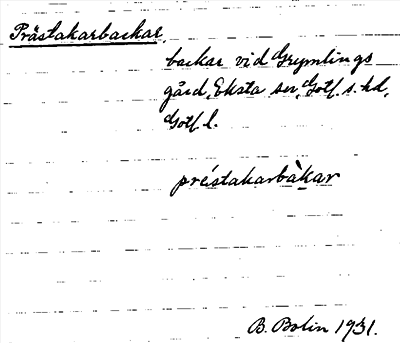 Prästakarbackar,
backar vid Grymlings
gård, Eksta sn, Gotl. s. hd,
Gotl. l.
préstakarbàkar
B. Bolin 1931.